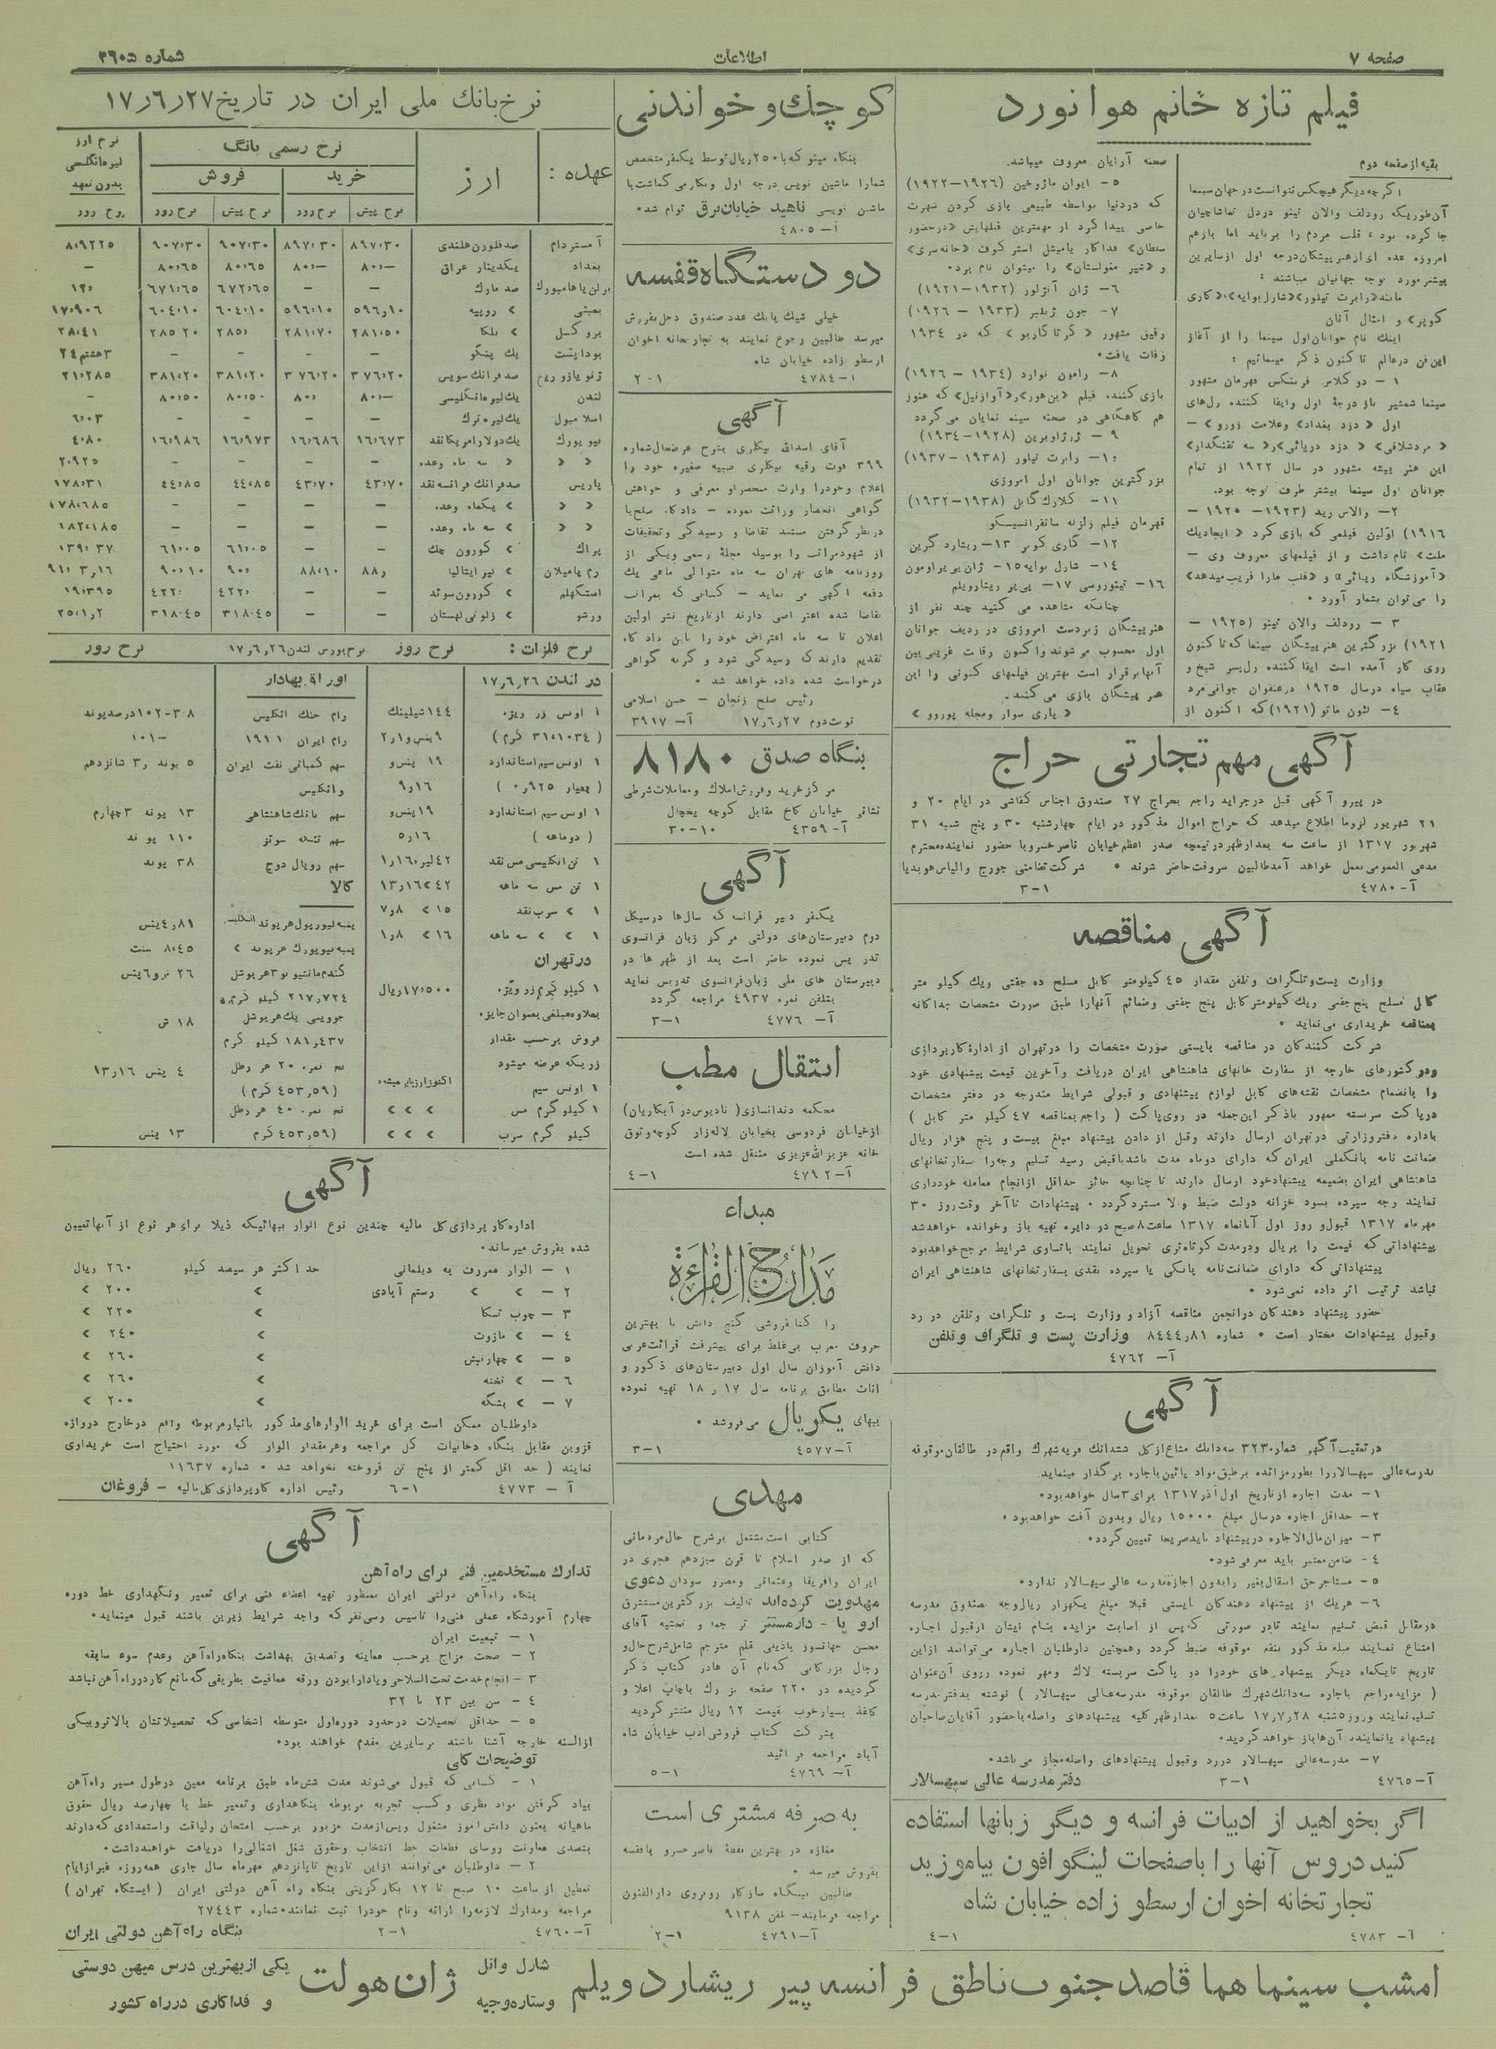 صفحه ۷
اطلاعات
شماره ۳۶۰۵
فیلم تازه خانم هوا نورد
بقیه از صفحه دوم
اگرچه دیگر هیچکس نتوانست در جهان سینما
آن‌طوریکه رودلف والان تینو در دل تماشاچیان
جا کرده بود، قلب مردم را برباید اما بازهم
امروزه عده ای از هنرپیشگان درجه اول از سایرین
بیشتر مورد توجه جهانیان میباشند :
مانند «رابرت تیلور» «شارل بوایه»، «کاری
کوپر» و امثال آنان
اینك نام جوانان اول سینما را از آغاز
این فن در عالم تا کنون ذکر مینمائیم :
۱ – دو کلاس فربنکس قهرمان مشهور
سینما شمشیر باز درجهٔ اول وایفا کننده رل‌های
اول « دزد بغداد» وعلامت زورو» –
«مرد شلاقی» « دزد دریائی» و« سه تفنگدار»
این هنر پیشه مشهور در سال ۱۹۲۲ از تمام
جوانان اول سینما بیشتر طرف توجه بود.
۲– والاس رید (۱۹۲۳– ۱۹۲۵ –
۱۹۱۶) اولین فیلمی که بازی کرد « ایجاد یك
ملت» نام داشت و از فیلمهای معروف وی –
«آموزشگاه زیبائی» و «قلب مارا فریب میدهد»
را می‌توان بشمار آورد .
۳ – رودلف والان تینو (۱۹۲۵ –
۱۹۲۱) بزرگترین هنرپیشگان سینما که تا کنون
روی کار آمده است ایفا کننده رل‌پسر شیخ و
عقاب سیاه در سال ۱۹۲۵ در عنفوان جوانی مرد
۴– لئون ماتو (۱۹۲۱) که اکنون از
صحنه آرایان معروف میباشد.
۵– ایوان ماژوخین (۱۹۲۶–۱۹۲۲)
که در دنیا بواسطه طبیعی بازی کردن شهرت
خاصی پیدا کرد از مهمترین فیلمهایش «در حضور
سلطان» فداکار یا میشل استر کوف «خانه سری»
و «شیر مغولستان» را میتوان نام برد.
۶– ژان آنژلور (۱۹۳۲–۱۹۲۱)
۷– جون ژیلبر (۱۹۳۳ – ۱۹۲۶)
رفیق مشهور « گرتا گاربو » که در ۱۹۳۴
وفات یافت.
۸– رامون نوارد (۱۹۳۴ – ۱۹۲۶)
بازی کننده فیلم «بن‌هور» و«آوازنیل» که هنوز
هم گاهگاهی در صحنه سینما نمایان می‌گردد
۹ – ژرژ اوبرین (۱۹۲۸–۱۹۳۴)
۱۰– رابرت تیلور (۱۹۳۸–۱۹۳۷)
بزرگترین جوانان اول امروزی
۱۱– کلارك گابل (۱۹۳۸–۱۹۳۲)
قهرمان فیلم زلزله سانفرانسیسکو
۱۲– گاری کوپر ۱۳– ریشارد گرین
۱۴– شارل بوایه ۱۵– ژان پی‌یر اومون
۱۶– تینوروسی ۱۷– پی‌یر ریشارویلم
چنانکه مشاهده می کنید چند نفر از
هنرپیشگان زبردست امروزی در ردیف جوانان
اول محسوب می‌شوند واکنون رقابت غریبی بین
آنها برقرار است بهترین فیلمهای کنونی را این
هنر پیشگان بازی می‌کنند.
« پاری سوار ومجله پوروو »
آگهی مهم تجارتی حراج
در پیرو آگهی قبل در جراید راجع بحراج ۲۷ صندوق اجناس کفاشی در ایام ۲۰ و
۲۱ شهریور لزوما اطلاع میدهد که حراج اموال مذکور در ایام چهارشنبه ۳۰ و پنج شنبه ۳۱
شهریور ۱۳۱۷ از ساعت سه بعدازظهر در تیمچه صدر اعظم خیابان ناصر خسرو با حضور نماینده محترم
مدعی العمومی بعمل خواهد آمد طالبین سروقت حاضر شوند . شرکت تضامنی جورج والیاس هوبدیا
آ– ۴۷۸۰
۱–۳
آگهی مناقصه
وزارت پست وتلگراف وتلفن مقدار ۴۵ کیلومتر کابل مسلح ده جفتی ویك کیلو متر
کابل مسلح پنج جفتی ویك کیلومتر کابل پنج جفتی وضمائم آنهارا طبق صورت مشخصات جداگانه
بمناقصه خریداری می نماید .
شرکت کنندگان در مناقصه بایستی صورت مشخصات را در تهران از ادارهٔ کارپردازی
ودر کشورهای خارجه از سفارت خانهای شاهنشاهی ایران دریافت وآخرین قیمت پیشنهادی خود
را بانضمام مشخصات نقشه‌های کابل لوازم پیشنهادی و قبولی شرایط مندرجه در دفتر مشخصات
در پاکت سربسته ممهور باذکر این جمله در روی پاکت ( راجع بمناقصه ۴۷ کیلو متر کابل )
باداره دفتر وزارتی در تهران ارسال دارند وقبل از دادن پیشنهاد مبلغ بیست و پنج هزار ریال
ضمانت نامه بانکملی ایران که دارای دو ماه مدت باشد باقبض رسید تسلیم وجه را سفارتخانهای
شاهنشاهی ایران بضمیمه پیشنهاد خود ارسال دارند تا چنانچه حائز حداقل از انجام معامله خودداری
نمایند وجه سپرده بسود خزانه دولت ضبط و الا مسترد گردد . پیشنهادات تا آخر وقت روز ۳۰
مهرماه ۱۳۱۷ قبول و روز اول آبانماه ۱۳۱۷ ساعت ۸ صبح در دایره تهیه باز وخوانده خواهد شد
پیشنهاداتی که قیمت را بریال ودر مدت کوتاه‌تری تحویل نمایند باتساوی شرایط مرجح خواهد بود
پیشنهاداتی که دارای ضمانت نامه بانکی یا سپرده نقدی بسفارتخانهای شاهنشاهی ایران
نباشد ترتیب اثر داده نمی‌شود .
حضور پیشنهاد دهندکان در انجمن مناقصه آزاد و وزارت پست و تلگراف وتلفن در رد
وقبول پیشنهادات مختار است . شماره ۸۴۴۴٫۸۱ وزارت پست و تلگراف وتلفن
آ– ۴۷۶۲
آگهی
در تعقیب آگهی شماره ۳۲۳ سه دانك مشاع از کل ششدانك قریه شهرك واقع در طالقان موقوفه
مدرسه عالی سپهسالار را بطور مزایده برطبق مواد پائین باجاره بر گذار مینماید.
۱– مدت اجاره از تاریخ اول آذر ۱۳۱۷ برای ۳ سال خواهد بود.
۲– حداقل اجاره در سال مبلغ ۱۵۰۰۰ ریال وبدون آفت خواهد بود .
۳ – میزان مال الاجاره در پیشنهاد باید صریحا تعیین گردد.
۴ – ضامن معتبر باید معرفی شود.
۵– مستاجر حق انتقال بغیر را بدون اجازه مدرسه عالی سپهسالار ندارد.
۶– هریك از پیشنهاد دهندکان بایستی قبلا مبلغ یکهزار ریال وجه صندوق مدرسه
در مقابل قبض تسلیم نمایند تا در صورتی که پس از اصابت مزایده بنام ایشان از قبول اجاره
امتناع نمایند مبلغ مذکور بنفع موقوفه ضبط گردد وهمچنین داوطلبان اجاره می‌توانند از این
تاریخ تا یکماه دیگر پیشنهاد های خودرا در پاکت سربسته لاك ومهر نموده و روی آن عنوان
( مزایده راجع باجاره سه دانك شهرك طالقان موقوفه مدرسه عالی سپهسالار ) نوشته بدفتر مدرسه
تسلیم نمایند وروز ۵ شنبه ۱۷٫۷٫۲۸ ساعت ۵ بعدازظهر کلیه پیشنهادهای واصله باحضور آقایان صاحبان
پیشنهاد یا نماینده آن‌ها باز خواهد گردید.
۷– مدرسه عالی سپهسالار در رد وقبول پیشنهادهای واصله مجاز می باشد.
آ–۴۷۶۵
۱–۳
دفتر مدرسه عالی سپهسالار
اگر بخواهید از ادبیات فرانسه و دیگر زبانها استفاده
کنید دروس آنها را باصفحات لینگو افون بیاموزید
تجارتخانه اخوان ارسطو زاده خیابان شاه
آ– ۴۷۸۳
۱–۴
کوچك و خواندنی
بنگاه مینو که با ۲۵۰ ریال توسط یکنفر متخصص
شمارا ماشین نویس درجه اول وبکار می گماشت با
ماشن نویسی ناهید خیابان برق توام شد.
آ– ۴۸۰۵
دو دستگاه قفسه
خیلی شیك یا یك عدد صندوق دخل بفروش
میرسد طالبین رجوع نمایند به تجارتخانه اخوان
ارسطو زاده خیابان شاه
آ–۴۷۸۴
۱–۲
آگهی
آقای اسدالله بیگلری بشرح عرضحال شماره
۳۹۹ فوت رقیه بیگلری صبیه صغیره خود را
اعلام وخودرا وارث منحصر او معرفی و خواهش
گواهی انحصار وراثت نموده – دادگاه صلح با
در نظر گرفتن مستند تقاضا و رسیدگی وتحقیقات
از شهود مراتب را بوسیله مجلهٔ رسمی ویکی از
روزنامه های تهران سه ماه متوالی ماهی یك
دفعه آگهی می نماید – کسانی که بمراتب
تقاضا شده اعتراضی دارند از تاریخ نشر اولین
اعلان تا سه ماه اعتراض خود را باین دادگاه
تقدیم دارند که رسیدگی شود و گرنه گواهی
درخواست شده داده خواهد شد .
رئیس صلح زنجان – حسن اسلامی
نوبت دوم ۱۷٫۶٫۲۷ آ– ۳۹۱۷
بنگاه صدق ۸۱۸۰
مرکز خرید وفروش املاك ومعاملات شرطی
تشاتر خیابان کاخ مقابل کوچه یخچال
آ–۴۳۵۹
۱۰–۳۰
آگهی
یکنفر دبیر فرانسه که سال‌ها در سیکل
دوم دبیرستان‌های دولتی مرکز زبان فرانسوی
تدریس نموده حاضر است بعد از ظهر ها در
دبیرستان های ملی زبان فرانسوی تدریس نماید
بتلفن نمره ۴۹۳۷ مراجعه گردد
آ– ۴۷۷۶
۱–۳
انتقال مطب
محکمه دندانسازی( نادیوس در آبکاریان)
از خیابان فردوسی بخیابان لاله‌زار کوچه وثوق
خانه عزیزالله عزیزی منتقل شده است
آ–۴۷۹۲
۱–۴
مبداء
مدارج القراءة
را کتابفروشی گنج دانش با بهترین
حروف معرب بی‌غلط برای پیشرفت قرائت عربی
دانش آموزان سال اول دبیرستان‌های ذکور و
اناث مطابق برنامه سال ۱۷ و ۱۸ تهیه نموده
ببهای یکریال می فروشد .
آ–۴۵۷۷
۱–۳
مهدی
کتابی است مشتمل برشرح حال مردمانی
که از صدر اسلام تا قرن سیزدهم هجری در
ایران وافریقا وعثمانی ومصر و سودان دعوی
مهدویت کرده‌اند تالیف بزرگترین مستشرق
اروپا – دارمستتر ترجمه و تحشیه آقای
محسن جهانسوز باذیلی بقلم مترجم شامل شرح حال و
رجال بزرگانی که نام آن ها در کتاب ذکر
گردیده در ۲۲۰ صفحه بزرك باچاپ اعلا و
کاغذ بسیار خوب بقیمت ۱۲ ریال منتشر گردید
بشرکت کتاب فروشی ادب خیابان شاه
آباد مراجعه فرمائید
آ– ۴۷۶۹
۱–۵
به صرفه مشتری است
مغازه در بهترین نقطهٔ ناصرخسرو باقفسه
بفروش میرسد .
طالبین ببنگاه سازکار روبروی دارالفنون
مراجعه فرمایند– تلفن ۹۱۳۸
آ–۴۷۹۱
۱–۲
نرخ بانك ملی ایران در تاریخ ۱۷٫۶٫۲۷
عهده :
ارز
نرخ رسمی بانگ
خرید
فروش
نرخ پیش
نرخ روز
نرخ پیش
نرخ روز
نرخ ارز
لیره انگلیسی
بدون تعهد
نرخ روز
آمستردام صدفلورن هلندی ۸۹۷٫۳۰ ۸۹۷٫۳۰ ۹۰۷٫۳۰ ۹۰۷٫۳۰ ۸٫۹۲۲۵
بغداد یکدینار عراق ۸۰٫– ۸۰٫– ۸۰٫۶۵ ۸۰٫۶۵ –
برلن یا هامبورك صد مارك – – ۶۷۲٫۶۵ ۶۷۱٫۶۵ ۱۲٫
بمبئی » روپیه ۵۹۶٫۱۰ ۵۹۶٫۱۰ ۶۰۴٫۱۰ ۶۰۴٫۱۰ ۱۷٫۹۰۶
بروکسل » بلگا ۲۸۱٫۵۰ ۲۸۱٫۷۰ ۲۸۵٫ ۲۸۵٫۲۰ ۲۸٫۴۱
بوداپشت یك پنگو – – – – ۳ هشتم ۲۴
ژنو یا زوریخ صدفرانك سویس ۳۷۶٫۲۰ ۳۷۶٫۲۰ ۳۸۱٫۲۰ ۳۸۱٫۲۰ ۲۱٫۲۸۵
لندن یك لیره انگلیسی ۸۰٫– ۸۰٫ ۸۰٫۵۰ ۸۰٫۵۰ –
اسلامبول یك لیره ترك – – – – ۶٫۰۳
نیویورك یك دولار امریکا نقد ۱۶٫۶۷۳ ۱۶٫۶۸۶ ۱۶٫۹۷۳ ۱۶٫۹۸۶ ۴٫۸۰
» » » سه ماه وعده – – – – ۲٫۹۲۵
پاریس صدفرانك فرانسه نقد ۴۳٫۷۰ ۴۳٫۷۰ ۴۴٫۸۵ ۴۴٫۸۵ ۱۷۸٫۳۱
» » » یکماه وعده – – – – ۱۷۸٫۶۸۵
» » » سه ماه وعده – – – – ۱۸۲٫۱۸۵
پراك » کورون چك – – ۶۱٫۰۵ ۶۱٫۰۵ ۱۳۹٫۳۷
رم یا میلان » لیر ایتالیا ۸۸٫ ۸۸٫۱۰ ۹۰٫ ۹۰٫۱۰ ۹۱٫۳٫۱۶
استکهلم » کورون سوئد – – ۴۲۲٫ ۴۲۲٫ ۱۹٫۳۹۵
ورشو » زلوتی لهستان – – ۳۱۸٫۴۵ ۳۱۸٫۴۵ ۲۵٫۱٫۲
نرخ فلزات : نرخ روز
در لندن ۱۷٫۶٫۲۶
۱ اونس زر ویژه ۱۴۴ شیلینك
( ۳۱٫۱۰۳۴ گرم ) ۹ پنس و ۱٫۲
۱ اونس سیم استاندارد ۱۹ پنس و
( بعیار ۰٫۹۲۵ ) ۹٫۱۶
۱ اونس سیم استاندارد ۱۹ پنس و
( دوماهه ) ۵٫۱۶
۱ تن انگلیسی مس نقد ۴۲ لیره ۱٫۱۶
۱ تن مس سه ماهه ۴۲ » ۱۳٫۱۶
۱ » سرب نقد ۱۵ » ۷٫۸
۱ » » سه ماهه ۱۶ » ۱٫۸
در تهران
۱ کیلو گرم زر ویژه ۱۷٫۵۰۰ ریال
بعلاوه مبلغی بعنوان جایزه
فروش برحسب مقدار
زریکه عرضه میشود
۱ اونس سیم
۱ کیلو گرم مس » » »
کیلو گرم سرب » » »
نرخ بورس لندن ۱۷٫۶٫۲۶ نرخ روز
اوراق بهادار
وام جنك انگلیس ۱۰۲–۳٫۸ درصد پوند
وام ایران ۱۹۱۱ ۱۰۱–
سهم کمپانی نفت ایران ۵ پوند و۳ شانزدهم
وانگلیس
سهم بانك شاهنشاهی ۱۳ پوند ۳ چهارم
سهم تنگه سوئز ۱۱۰ پوند
سهم رویال دوچ ۳۸ پوند
کالا
پنبه لیورپول هر پوند انگلیسی ۴٫۸۱ پنس
پنبه نیویورك هر پوند » ۸٫۴۵ سنت
گندم مانیتوبو ۳ هر بوشل ۲۶ ش و ۶ پنس
۲۱۷٫۷۲۴ کیلو گرم
جو ویسی یك هر بوشل ۱۸ ش
۱۸۱٫۴۳۷ کیلو گرم
نخ نمره ۲۰ هر رطل ۴ پنس ۱۳٫۱۶
(۴۵۳٫۵۹ گرم )
نخ نمره ۴۰ هر رطل
(۴۵۳٫۵۹ گرم ۱۳ پنس
آگهی
اداره کارپردازی کل مالیه چندین نوع الوار ببهائیکه ذیلا برای هر نوع از آنها تعیین
شده بفروش میرساند.
۱ – الوار معروف به دیلمانی حداکثر هر سیصد کیلو ۲۶۰ ریال
۲ – » » رستم آبادی » ۲۰۰ »
۳ – چوب تسکا » ۲۲۰ »
۴ – » مازوت » ۲۴۰ »
۵ – » چهارتیش » ۲۶۰ »
۶ – » تخته » ۲۶۰ »
۷ – » بشگه » ۲۰۰ »
داوطلبان ممکن است برای خرید الوارهای مذکور بانبار مربوطه واقع در خارج دروازه
قزوین مقابل بنگاه دخانیات کل مراجعه وهر مقدار الوار که مورد احتیاج است خریداری
نمایند ( حد اقل کمتر از پنج تن فروخته نخواهد شد . شماره ۱۱۶۳۷
آ – ۴۷۷۳
۱–۶
رئیس اداره کارپردازی کل مالیه – فروغان
آگهی
تدارك مستخدمین فنی برای راه آهن
بنگاه راه‌آهن دولتی ایران بمنظور تهیه اعضاء فنی برای تعمیر ونگهداری خط دوره
چهارم آموزشگاه عملی فنی‌را تاسیس وسی نفر که واجد شرایط زیرین باشند قبول مینماید.
۱ – تبعیت ایران
۲ – صحت مزاج برحسب معاینه وتصدیق بهداشت بنگاه راه‌آهن وعدم سوء سابقه
۳ – انجام خدمت تحت السلاحی ویا دارا بودن ورقه معافیت بطریقی که مانع کار در راه آهن نباشد
۴ – سن بین ۲۳ تا ۳۲
۵ – حداقل تحصیلات در حدود دوره اول متوسطه اشخاصی که تحصیلاتشان بالاتر و بیکی
از السنه خارجه آشنا باشند بر سایرین مقدم خواهند بود.
توضیحات کلی
۱ – کسانی که قبول می‌شوند مدت شش‌ماه طبق برنامه معین در طول مسیر راه‌آهن
بیاد گرفتن مواد نظری و کسب تجربه مربوطه بنگاهداری وتعمیر خط با چهارصد ریال حقوق
ماهیانه بعنوان دانش‌آموز مشغول وپس از مدت مزبور برحسب امتحان ولیاقت واستعدادی که دارند
بتصدی معاونت روسای قطعات خط انتخاب وحقوق شغل اشغالی‌را دریافت خواهند داشت.
۲ – داوطلبان می‌توانند از این تاریخ تا پانزدهم مهرماه سال جاری همه‌روزه غیر از ایام
تعطیل از ساعت ۱۰ صبح تا ۱۲ بکارگزینی بنگاه راه آهن دولتی ایران ( ایستگاه تهران )
مراجعه ومدارك لازمه‌را ارائه ونام خودرا ثبت نمایند. شماره ۲۷۴۴۳
آ–۴۷۶۰
۱–۲
بنگاه راه‌آهن دولتی ایران
امشب سینما هما قاصد جنوب ناطق فرانسه پیر ریشارد ویلم
شارل وانل
وستاره وجیه
ژان هولت
یکی از بهترین درس میهن دوستی
و فداکاری در راه کشور